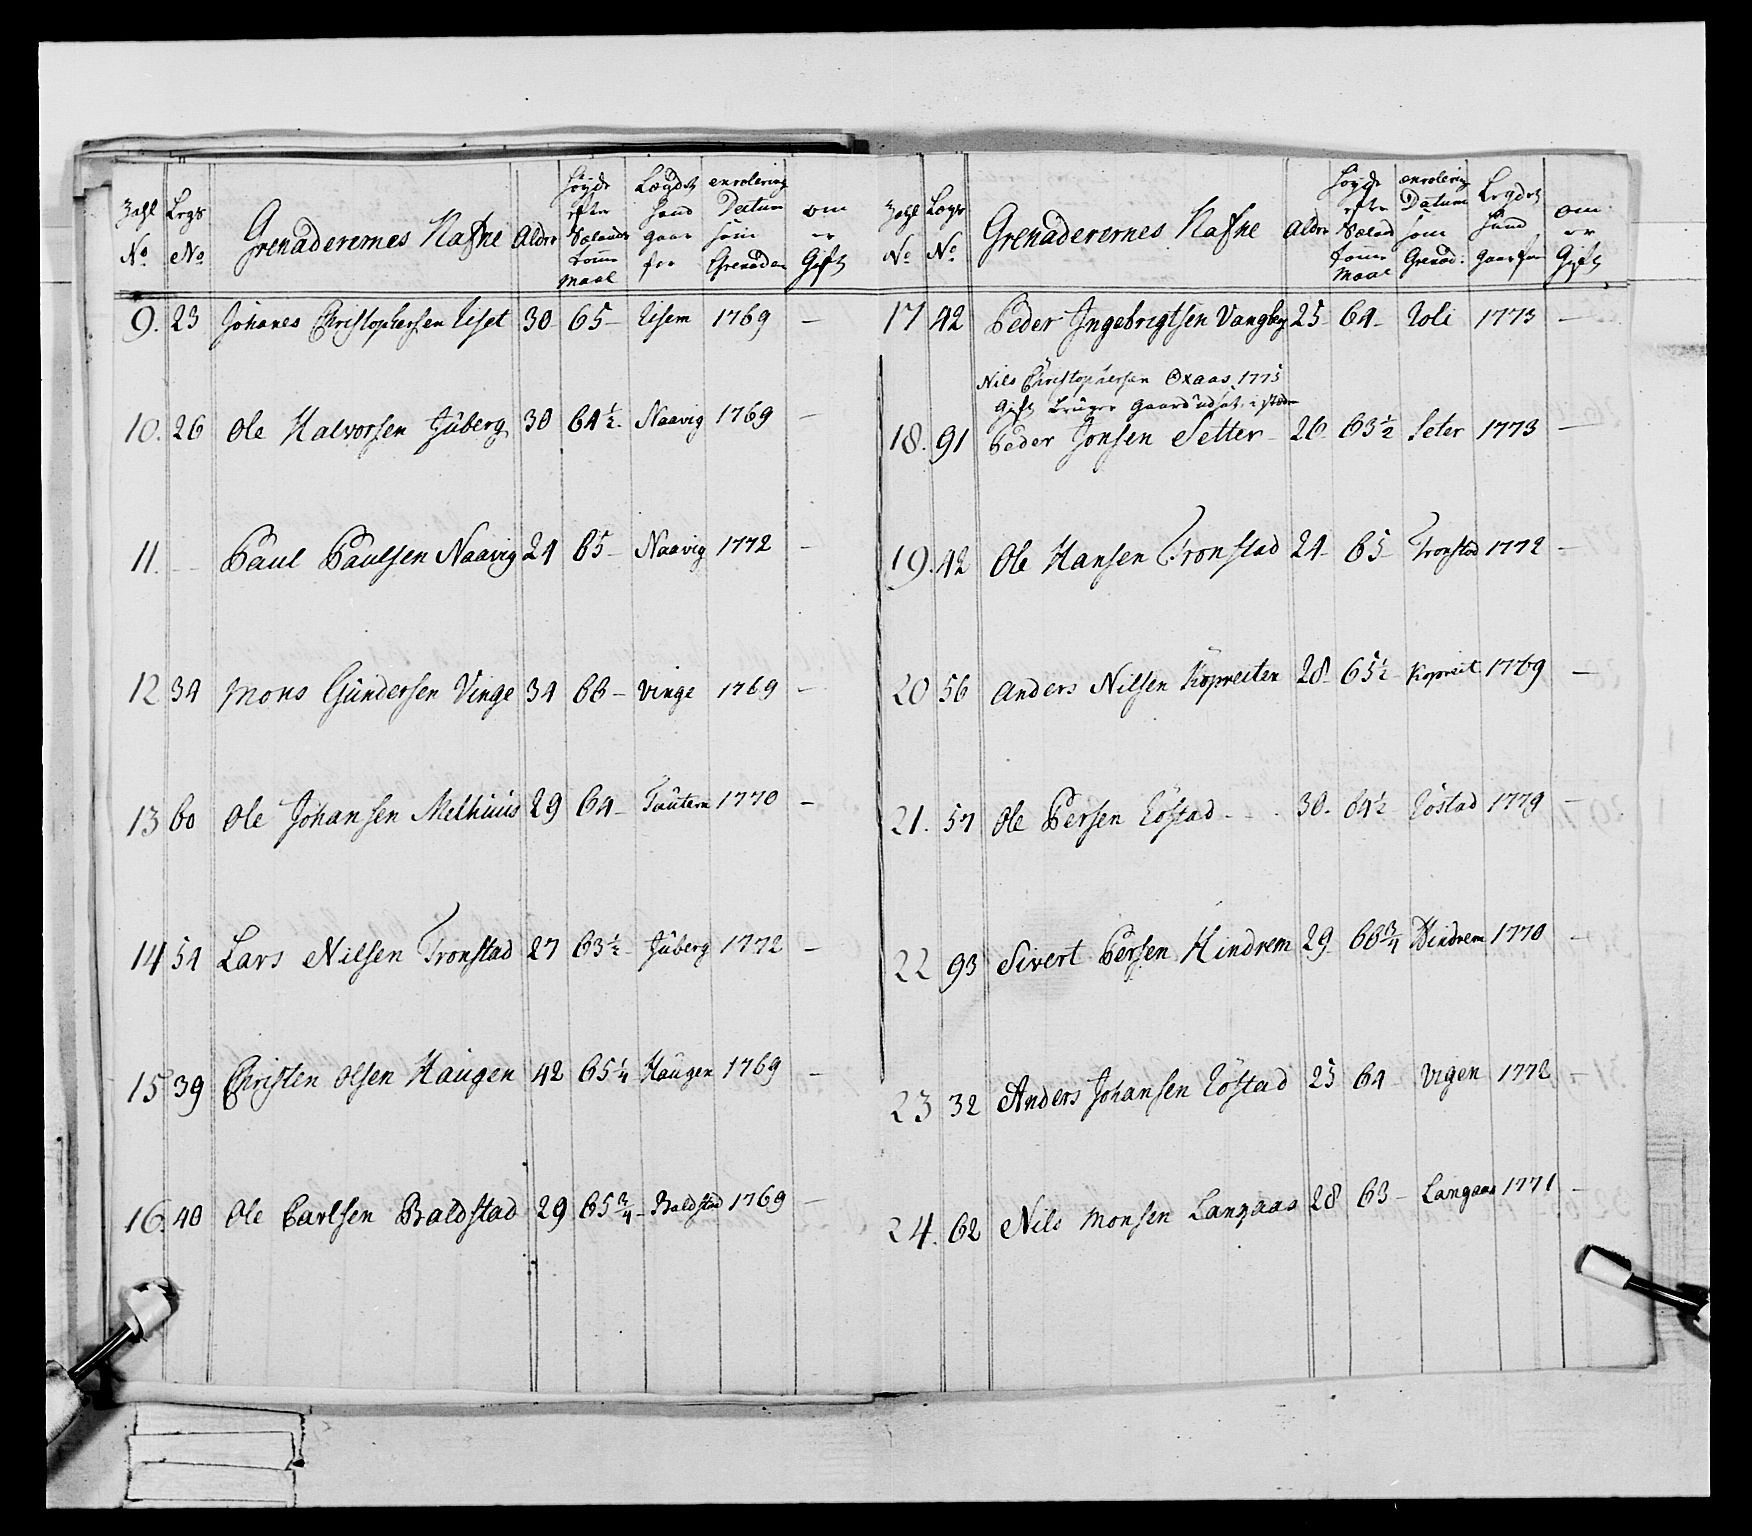 Zahl No | Legs No | Grenaderernes Nafne | Alder | Høyde efter Sælands tome Maal | Lægdet hand gaar for | enrolering Datum som Grenader | om er Gift
9. | 23 | Johanes Christophersen Liset | 30 | 65 – | Lisem | 1769 | –
10. | 26 | Ole Halvorsen Juberg | 30 | 64 1/2 – | Naavig | 1769 | –
11. | – | Paul Paulsen Naavig | 24 | 65 – | Naavig | 1772 | –
12 | 34 | Mons Gundersen Vinge | 34 | 66 – | Vinge | 1769 | –
13 | 60 | Ole Johansen Melhuus | 29 | 64 – | Tautern | 1770 | –
14 | 54 | Lars Nilsen Tronstad | 27 | 63 1/2 – | Juberg | 1772 | –
15 | 39 | Christen Olsen Haugen | 42 | 65 1/4 | Haugen | 1769 | –
16. | 40 | Ole Carlsen Baldstad | 29 | 65 3/4 – | Baldstad | 1769 | –
Zahl No | Legs No | Grenaderernes Nafne | Alder | Høyde efter Sælad tome Maal | enrolering Datum som Grenad: | Legdet hand gaar for | om er Gift
17 | 42 | Peder Ingebrigtsen Vangberg | 25 | 64 – | Loli | 1773 | –
Nils Christophersen Oxaas 1775
Gift bruger Gaard udsat i steden
18. | 91 | Peder Jonsen Setter – | 26 | 63 1/2 | Seter | 1773 | –
19. | 42 | Ole Hansen Tronstad | 24 – | 65 – | Tronstad | 1772 | –
20 | 56 | Anders Nilsen Kopreiten | 28 | 65 1/2 – | Kopreit | 1769 | –
21. | 57 | Ole Persen Løstad – | 30 – | 64 1/2 | Løstad | 1779 | –
22 | 93 | Sivert Persen Hindrem | 29 | 66 3/4 | Hindrem | 1770 | –
23 | 32 | Anders Johansen Løstad | 25 | 64 – | Vigen | 1772 | –
24. | 62 | Nils Monsen Langaas | 28 | 63 – | Langaas | 1771 | –